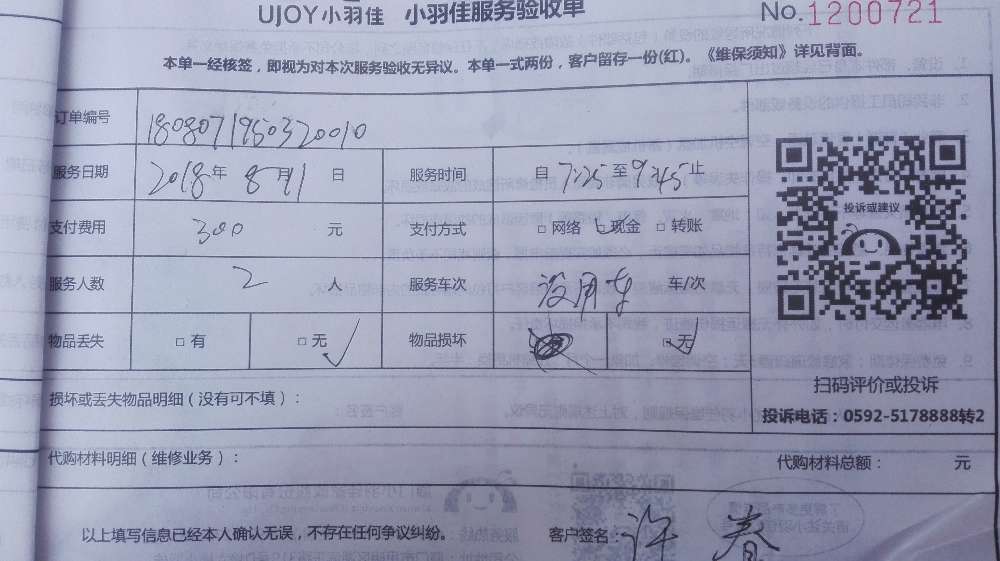 UJOY小羽佳 小羽佳服务验收单 No.1200721
本单一经核签，即视为对本次服务验收无异议。本单一式两份，客户留存一份(红)。《维保须知》详见背面。
订单编号 1808071950320010
服务日期 2018年8月1日 服务时间 自7:25至9:45止
支付费用 300 元 支付方式 □网络 □现金 □转账
服务人数 2 人 服务车次 没用车 车/次
物品丢失 □有 □无 物品损坏 □无
投诉或建议
扫码评价或投诉
投诉电话：0592-5178888转2
损坏或丢失物品明细（没有可不填）：
代购材料明细（维修业务）： 代购材料总额： 元
以上填写信息已经本人确认无误，不存在任何争议纠纷。 客户签名：许春